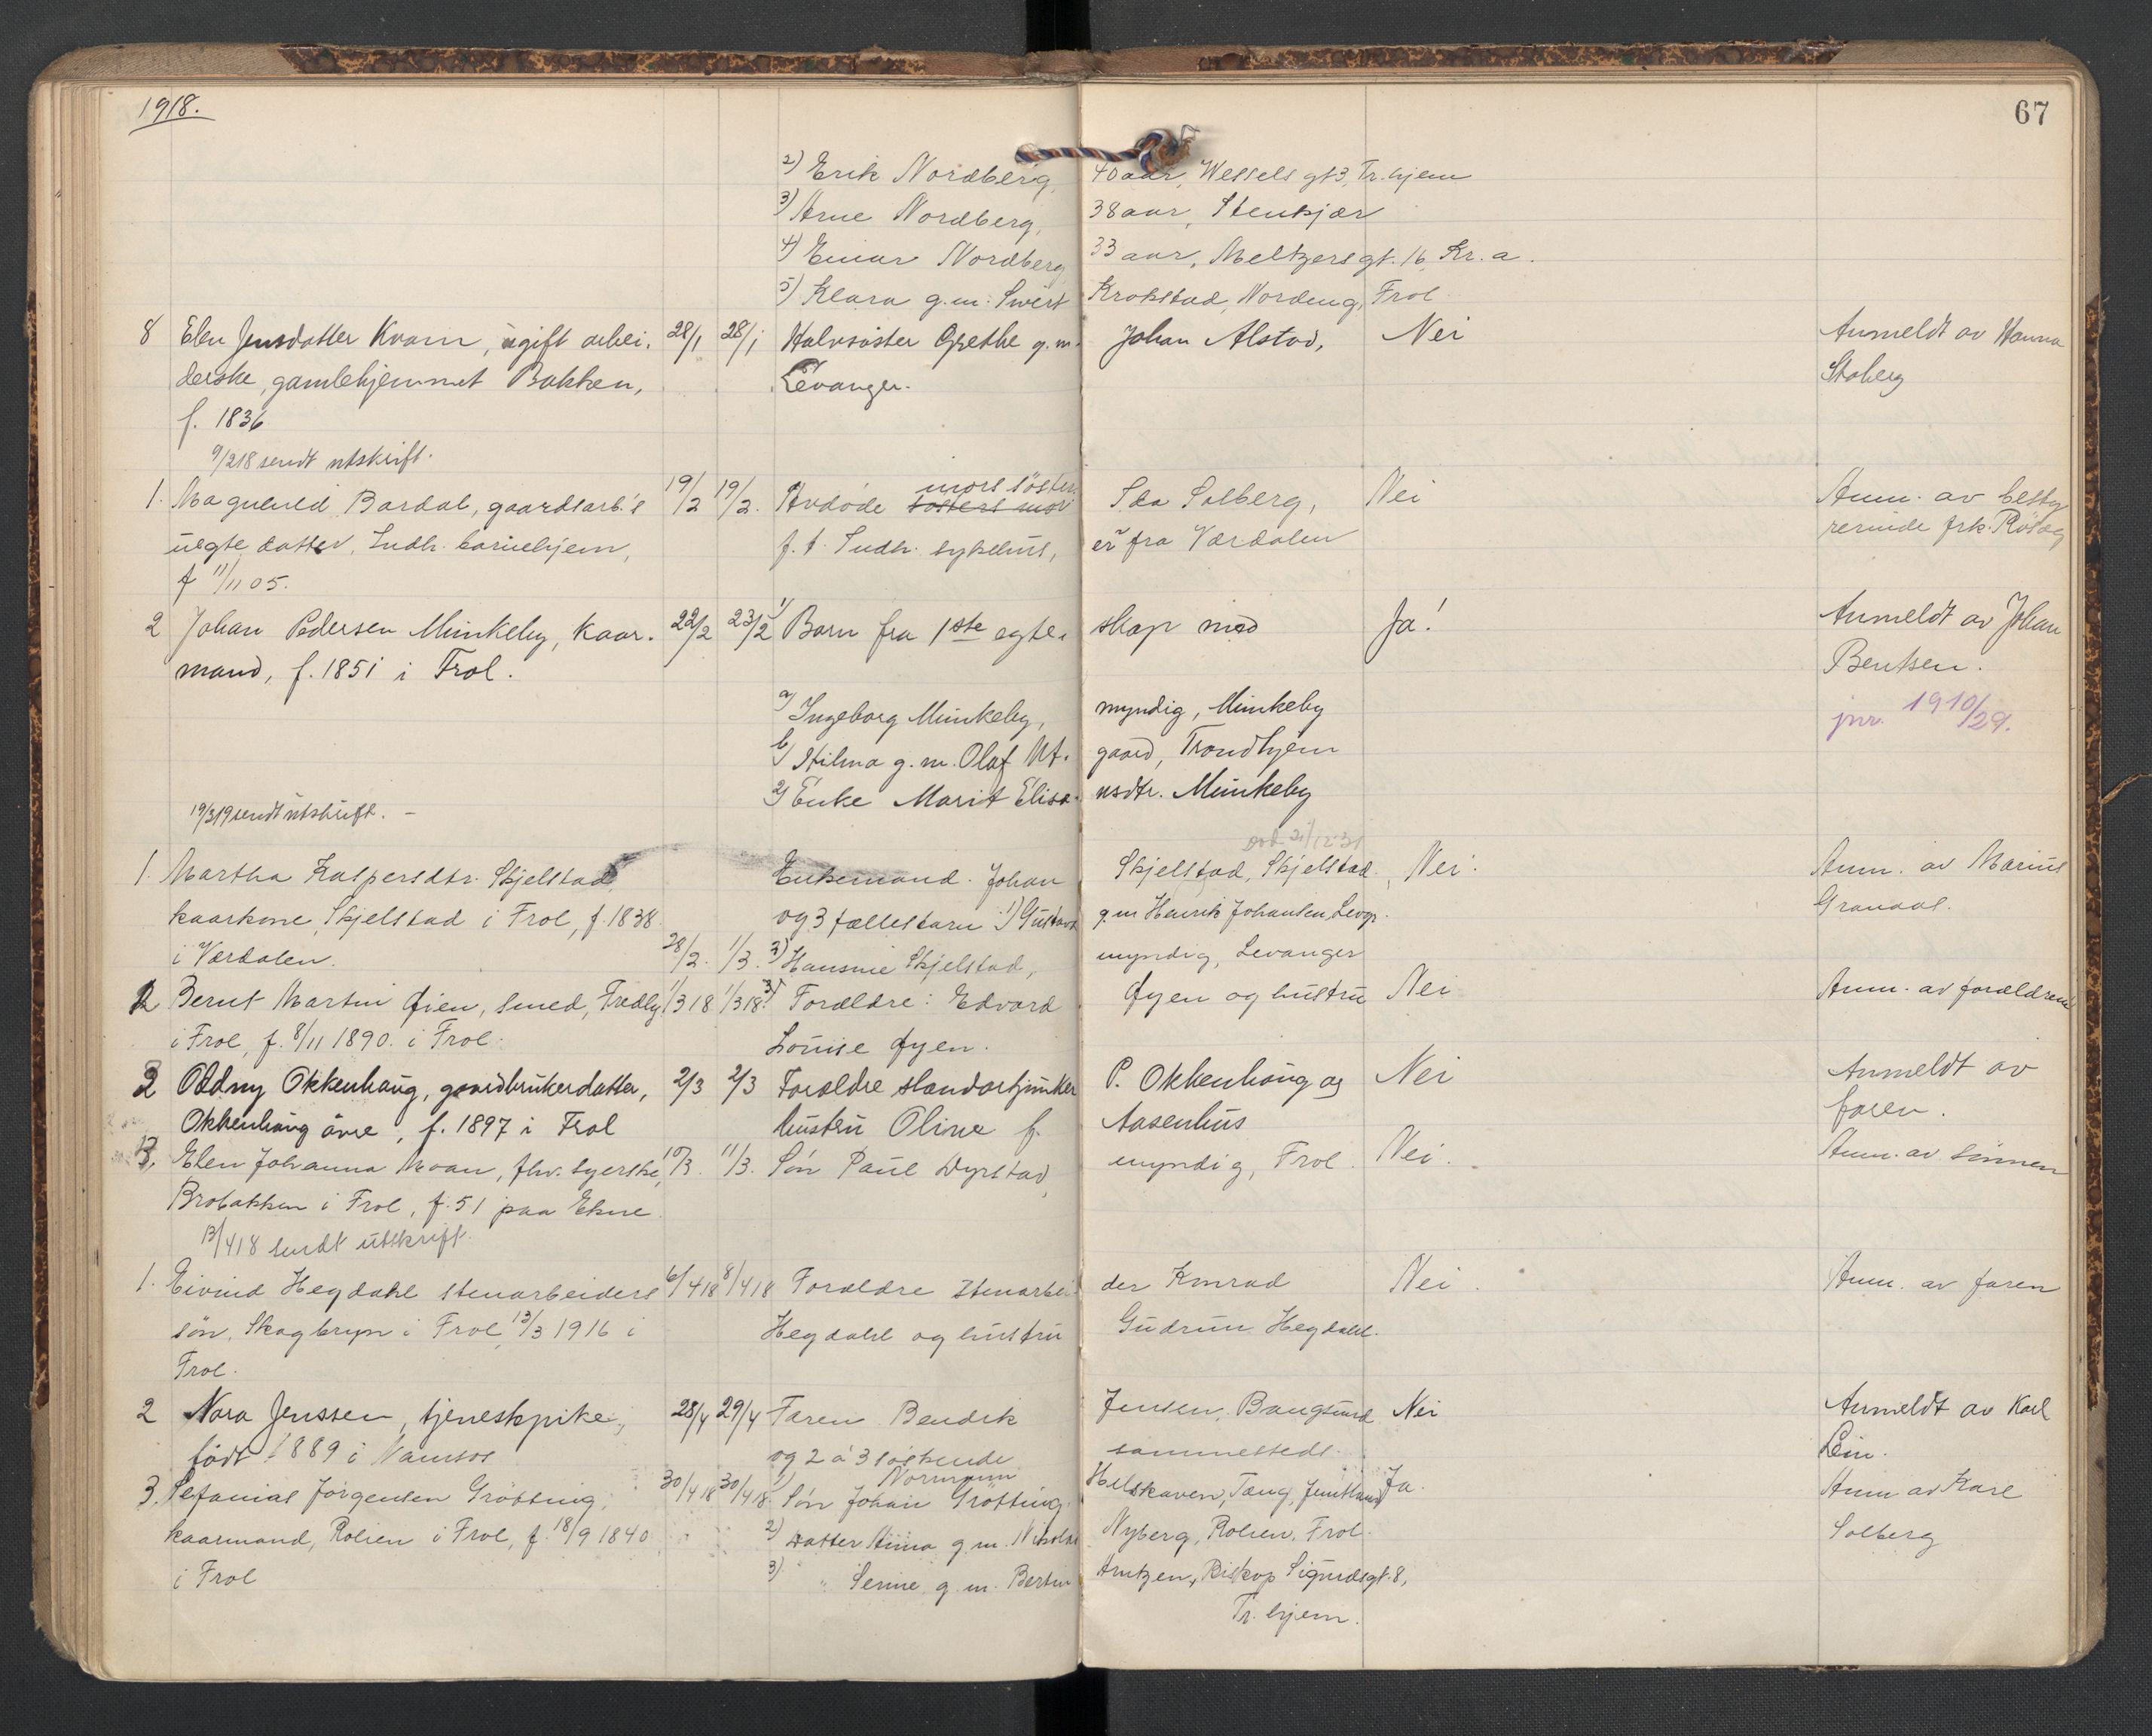 1918.
67
2) Erik Nordberg, 40 aar, Wessels gt 3, Tr.hjem
3) Arne Nordberg, 38 aar, Stenkjær
4) Einar Nordberg 33 aar, Meltzers gt. 16, Kr.a.
5) Klara g.m. Sivert Krokstad, Nordeng, Frol
8 Elen Jensdatter Kvam, ugift arbei- 28/1 28/1 Halvsöster Grethe g.m. Johan Alstad, Nei Anmeldt av Hanna
derske, gamlehjemmet Bakken, Levanger. Stoberg
f. 1836
9/218 sendt utskrift.
mors söster
1. Magnhild Bardal, gaardsarb.s 19/2 19/2. Avdöde sösters mor Ida Solberg, Nei Anm. av besty
uegte datter, Indh. barnehjem, f.t. Indh. sykehus, er fra Værdalen rerinde frk. Rösag
f 11/11 05.
2 Johan Pedersen Munkeby, kaar- 22/2 23/2 1/ Barn fra 1ste egte- skap med Ja! Anmeldt av Johan
mand, f. 1851 i Frol. Bentsen.
a) Ingeborg Munkeby, myndig, Munkeby jnr. 1910/29.
b) Hilma g.m. Olaf Ut- gaard, Trondhjem
2) Enke Marit Elisa- nsdtr. Munkeby
19/319 sendt utskrift. -
död 21/12 31
1. Martha Kaspersdtr. Skjelstad Enkemand Johan Skjelstad, Skjelstad, Nei. Anm. av Marius
kaarkone, Skjelstad i Frol, f. 1838 og 3 fællesbarn 1) Gustava g.m Henrik Johansen, Levgr. Granaas.
i Værdalen. 28/2. 1/3. 2) Hansine Skjelstad, myndig, Levanger
2 Bernt Martin Øien, smed, Fredly 1/3 18 1/3 18. 3) Forældre: Edvard Øyen og hustru Nei Anm. av forældrene
i Frol, f. 8/11 1890. i Frol. Louise Øyen.
3 Oddny Okkenhaug, gaardbrukerdatter, 2/3 2/3 Forældre standartjunker P. Okkenhaug og Nei Anmeldt av
Okkenhaug övre, f. 1897 i Frol hustru Oline f. Aasenhus faren.
Elen Johanna Moan, fhv. syerske, 10/3. 11/3. Sön Paul Dyrstad, myndig, Frol. Nei. Anm. av sönnen
Brobakken i Frol, f. 51 paa Ekne
13/418 sendt utskrift.
1. Eivind Hegdahl stenarbeiders 6/4 18 8/4 18 Forældre Stenarbei- der Konrad Nei. Anm. av faren
sön, Skogbryn i Frol, 13/3 1916 i Hegdahl og hustru Gudrun Hegdahl.
Frol.
2 Nora Jenssen, tjenestpike, 28/4 29/4 Faren Bendik Jensen, Bangsund Nei Anmeldt av Karl
födt 1889 i Namsos og 2 á 3 söskende sammesteds. Lein.
Normann
3. Sefanias Jörgensen Grötting, 30/4 18 30/4 18. 1) Sön Johan Grötting Tang, Jemtland Ja. Anm av Karl
kaarmand, Rolien i Frol, f. 18/9 1840 2) Datter Anna g.m. Nikolai Nyberg, Rolien, Frol. Solberg
i Frol 3) " Serine g.m. Bertin Arntzen, Biskop Sigurdsgt. 8,
Tr.hjem.